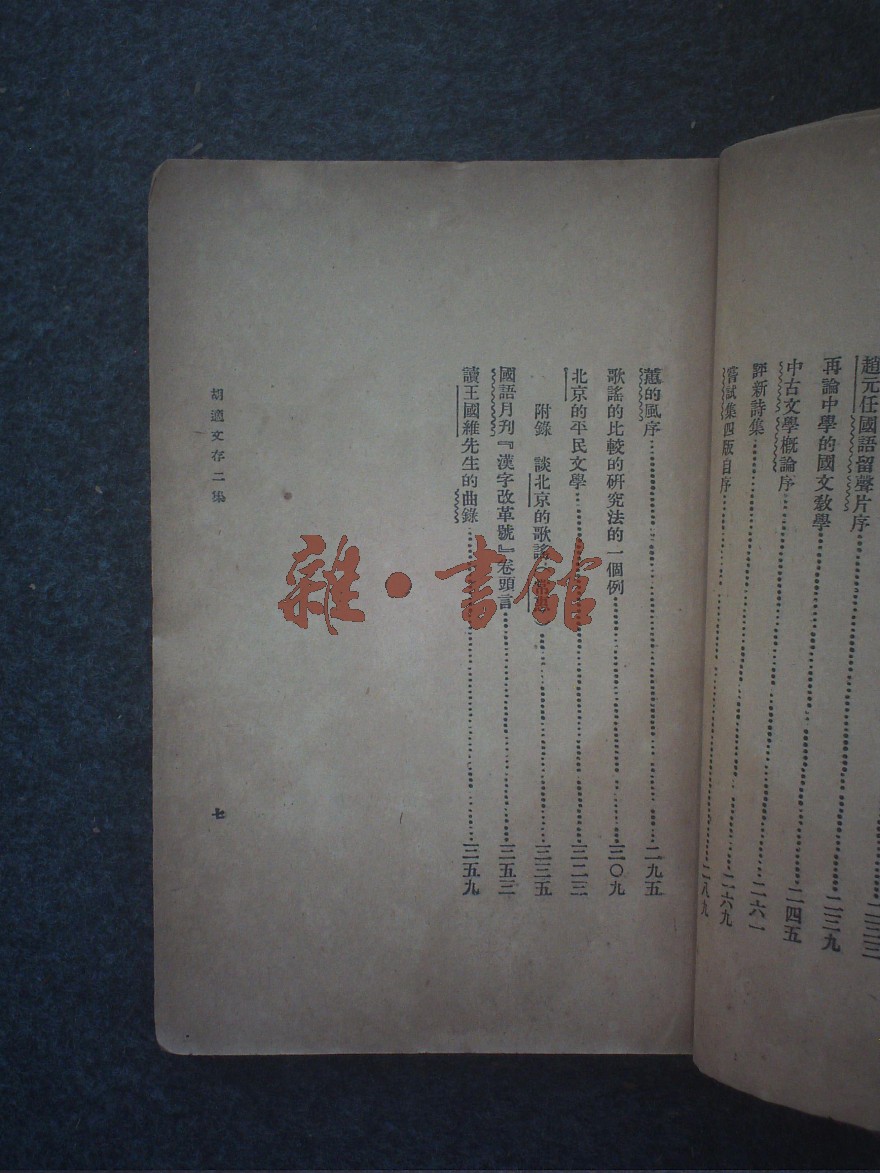 趙元任國語留聲片序……二三三
再論中學的國文教學……二三九
中古文學概論序……二四五
評新詩集……二六一
嘗試集四版自序……二六九
……二八九
蕙的風序……二九五
歌謠的比較的研究法的一個例……三〇九
北京的平民文學……三二三
附錄 談北京的歌謠（常惠）……三三五
國語月刊『漢字改革號』卷頭言……三五三
讀王國維先生的曲錄……三五九
胡適文存二集
七
雜·書館